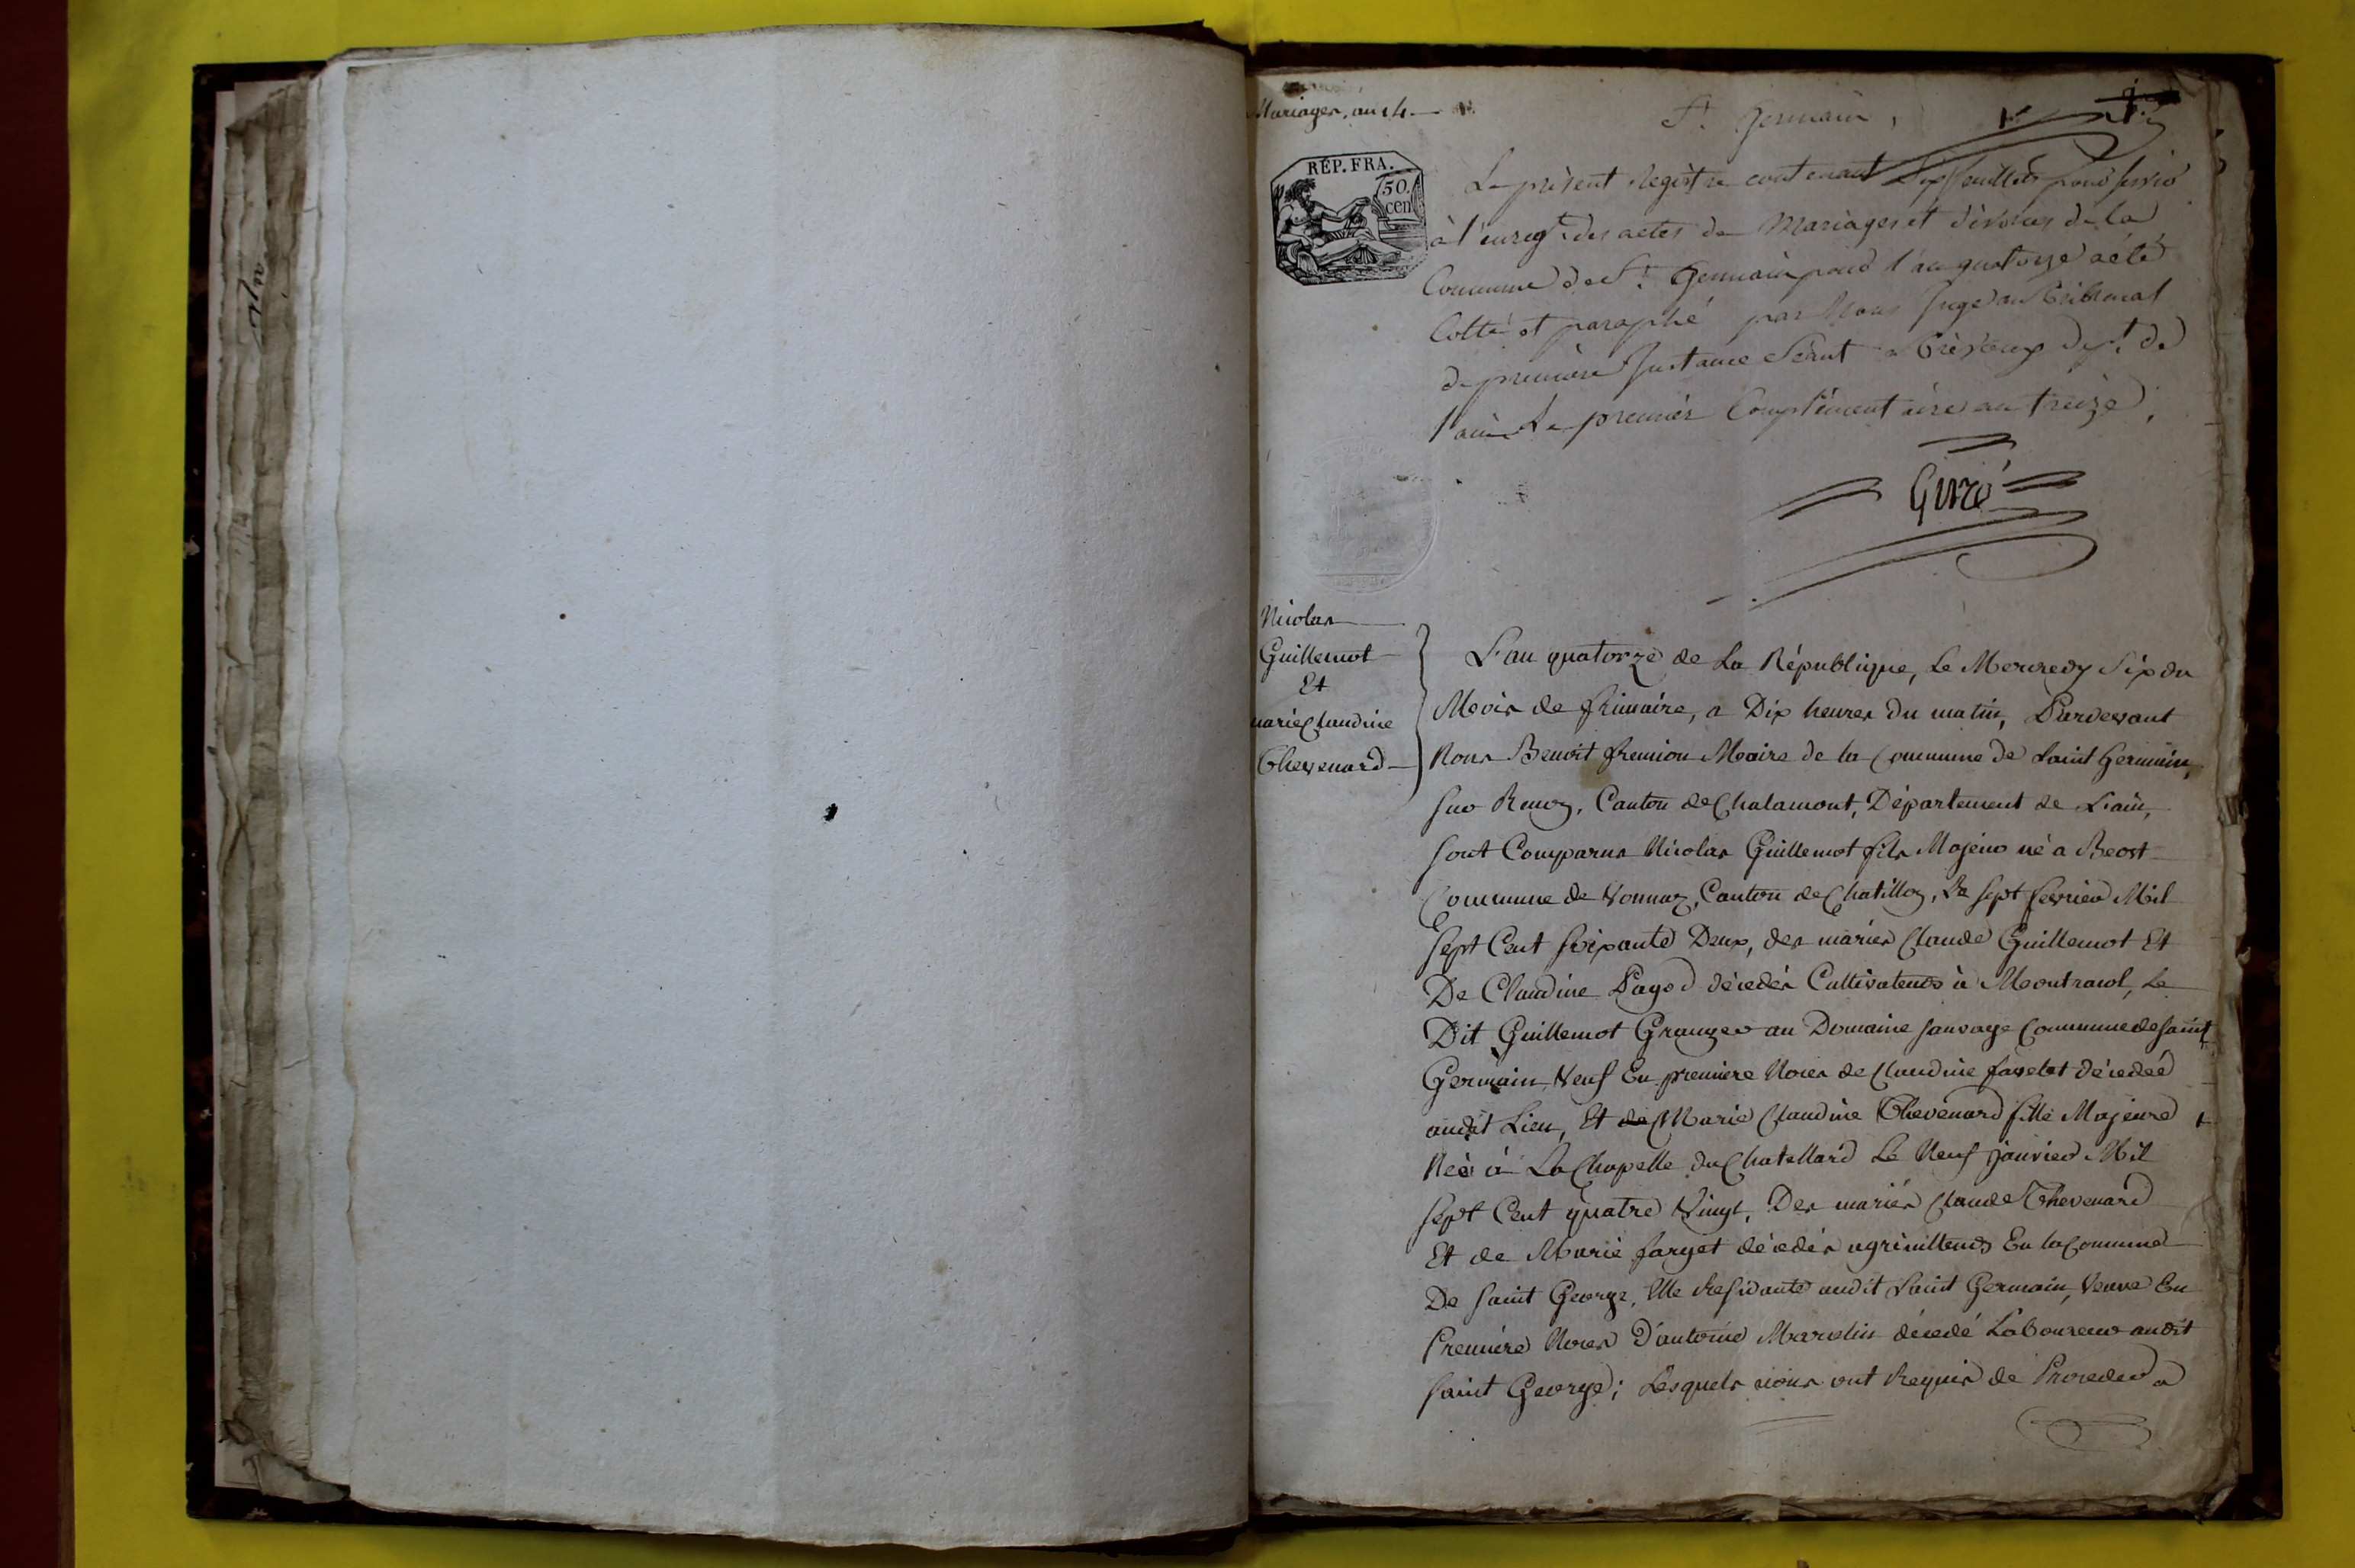 Mariages, an 14
St. Germain,
1er
RÉP. FRA.
50.
cen
Le présent Registre contenant Six feuillets pour servir
à l'enregt. des actes de Mariages et divorces de la
Commune de St. Germain pour l'an quatorze a été
Cotté et paraphé par Nous Juge au Tribunal
de première Instance Séant à Trévoux dept. de
l'ain Le premier Complémentaire an treize.
Nicolas
Guillemot
Et
marie Claudine
Thevenard
L'an quatorze de La République, Le Mercredy Six du
Mois de frimaire, a Dix heures Du matin, Pardevant
Nous Benoit fremion Maire de la Commune de Saint Germain,
sur Renon, Canton de Chalamont, Département de L'ain,
sont Comparus Nicolas Guillemot fils Majeur né a Beost
Commune de Vonnaz, Canton de Chatillon, Le sept fevrier Mil
sept Cent soixante Deux, des mariés Claude Guillemot Et
De Claudine Pagod décédés Cultivateurs à Montracol, Le
Dit Guillemot Granger au Domaine sauvage Commune de saint
Germain, Veuf En première Noces de Claudine favelet décédée
audit Lieu, Et de Marie Claudine Thevenard fille Majeure
Née à La Chapelle du Chatellard Le Neuf janvier Mil
sept Cent quatre Vingt, Des mariés Claude Thevenard
Et de Marie farget décédés agriculteurs En la Commune
De saint George, Elle Residante audit Saint Germain, Veuve En
Première Noces D'antoine Marelin décédé Laboureur audit
saint George; Lesquels nous ont Requis de Proceder a